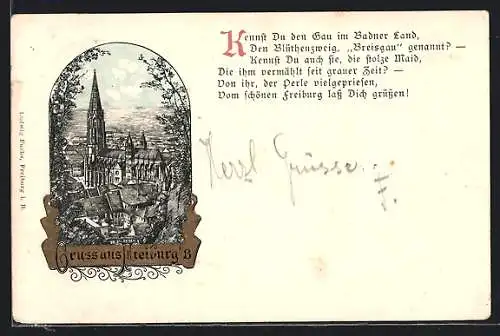 Kennst Du den Gau im Badner Land,
Den Blüthenzweig, „Breisgau" genannt? —
Kennst Du auch sie, die stolze Maid,
Die ihm vermählt seit grauer Zeit? —
Von ihr, der Perle vielgepriesen,
Vom schönen Freiburg laß Dich grüßen!
Herzl Grüsse.
Gruss aus Freiburg i/B
Freiburg i. B.